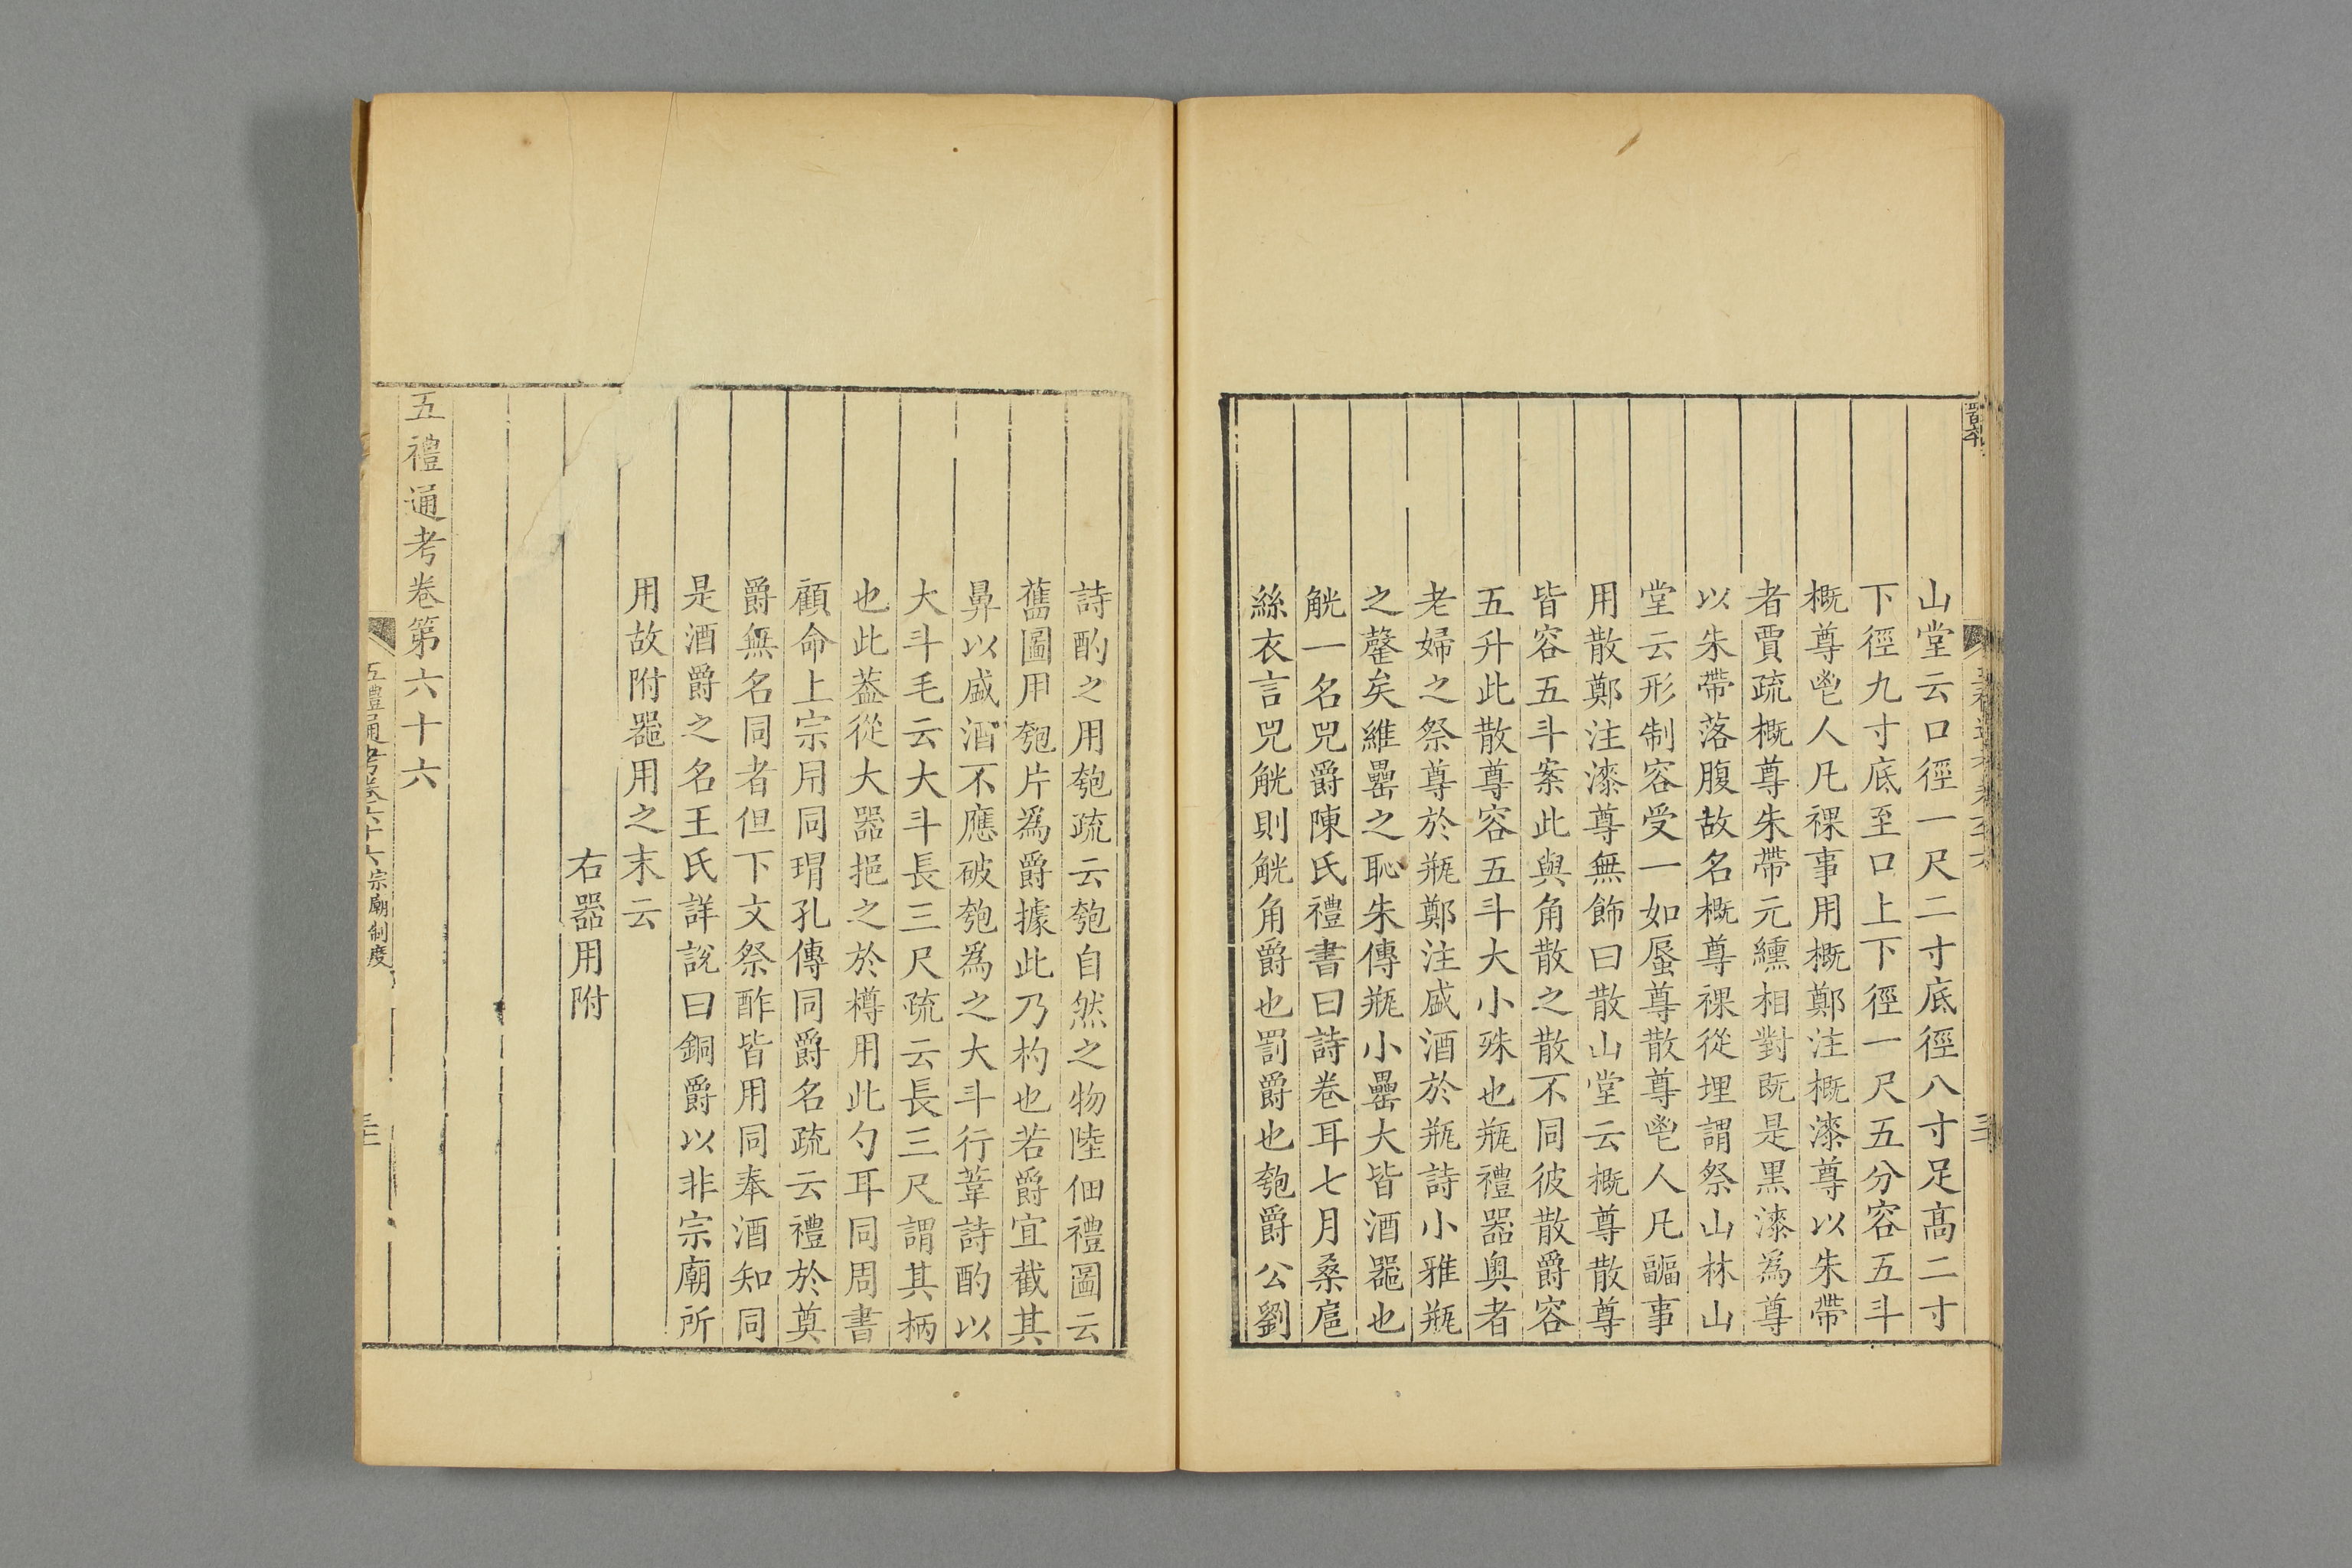 山堂云口徑一尺二寸底徑八寸足高二寸
下徑九寸底至口上下徑一尺五分容五斗
概尊鬯人凡祼事用概鄭注概漆尊以朱帶
者賈疏概尊朱帶元纁相對旣是黑漆為尊
以朱帶落腹故名概尊祼從埋謂祭山林山
堂云形制容受一如蜃尊散尊鬯人凡疈事
用散鄭注漆尊無飾曰散山堂云概尊散尊
皆容五斗案此與角散之散不同彼散爵容
五升此散尊容五斗大小殊也瓶禮器奧者
老婦之祭尊於瓶鄭注盛酒於瓶詩小雅瓶
之罄矣維罍之恥朱傳瓶小罍大皆酒器也
觥一名兕爵陳氏禮書曰詩卷耳七月桑扈
絲衣言兕觥則觥角爵也罰爵也匏爵公劉
詩酌之用匏疏云匏自然之物陸佃禮圖云
舊圖用匏片為爵據此乃杓也若爵宜截其
鼻以盛酒不應破匏為之大斗行葦詩酌以
大斗毛云大斗長三尺疏云長三尺謂其柄
也此葢從大器挹之於樽用此勺耳同周書
顧命上宗用同瑁孔傳同爵名疏云禮於奠
爵無名同者但下文祭酢皆用同奉酒知同
是酒爵之名王氏詳說曰銅爵以非宗廟所
用故附器用之末云
右器用附
五禮通考卷第六十六
五禮通考卷六十六宗廟制度